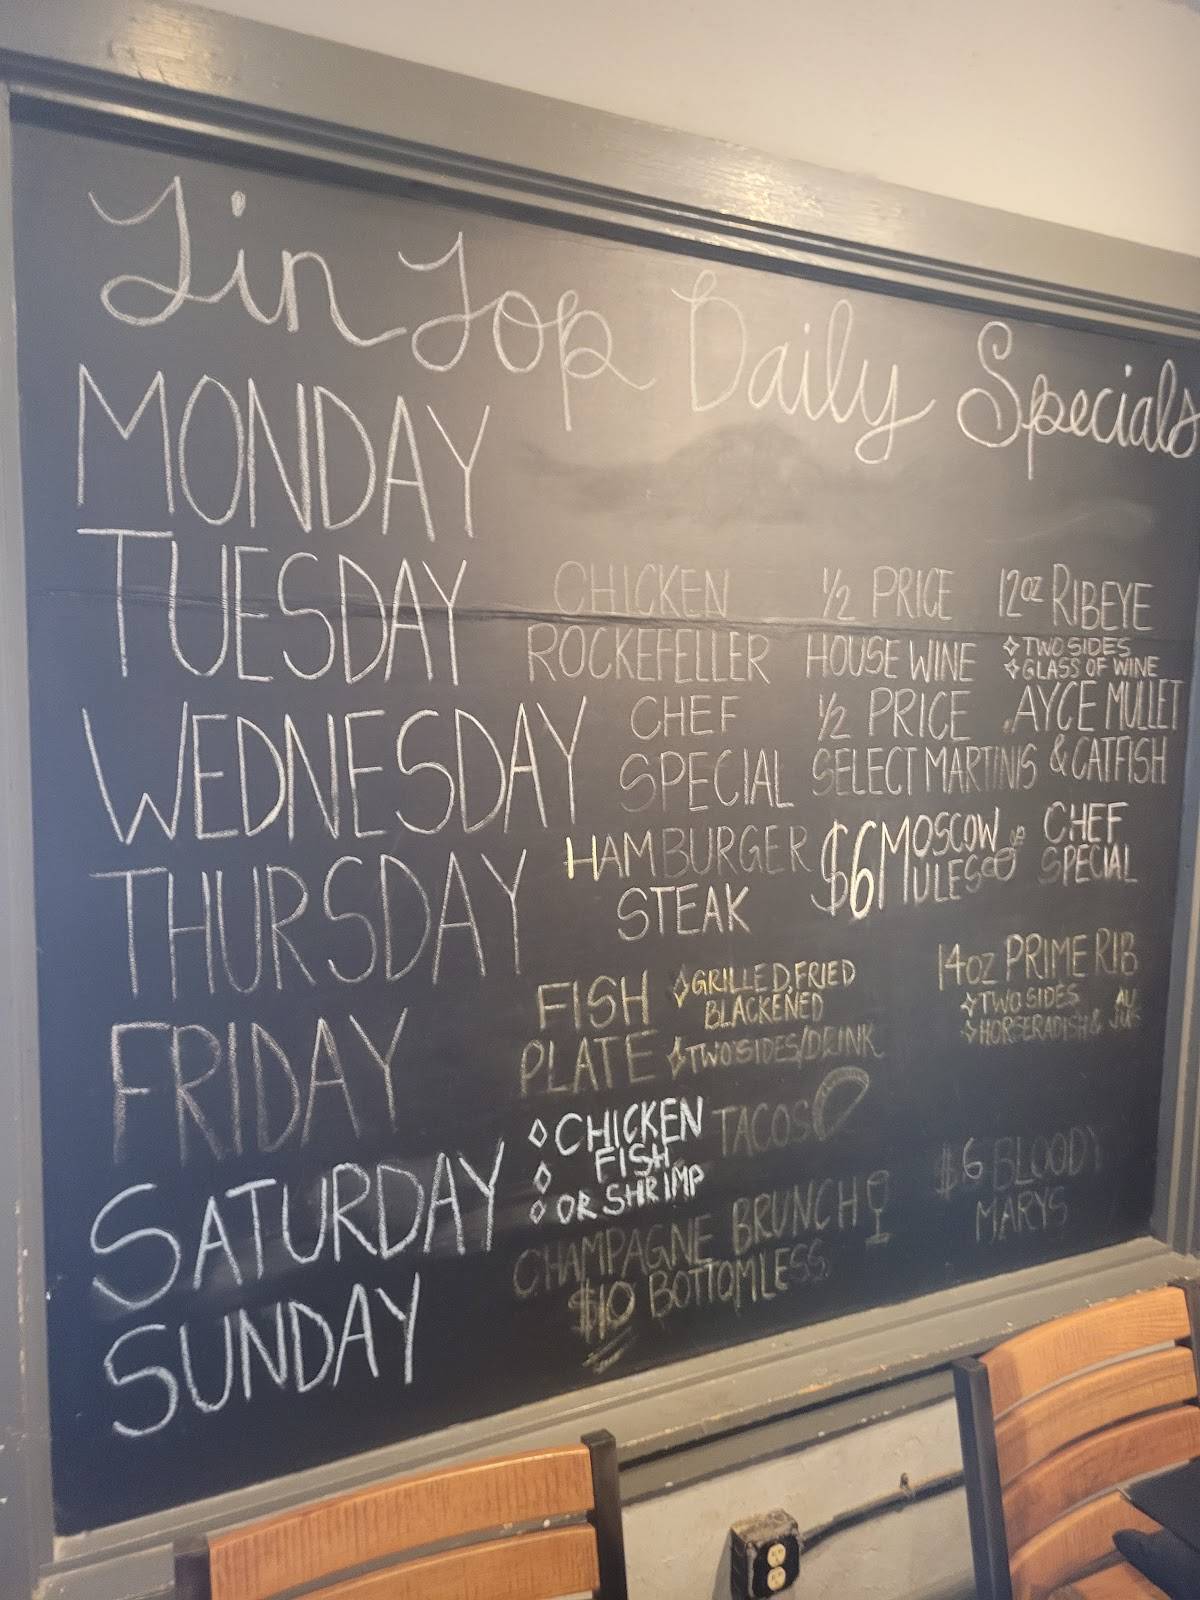 Tin Top Daily Specials
MONDAY
TUESDAY
CHICKEN
ROCKEFELLER
1/2 PRICE
HOUSE WINE
12oz RIBEYE
TWO SIDES
GLASS OF WINE
WEDNESDAY
CHEF
SPECIAL
1/2 PRICE
SELECT MARTINIS
AYCE MULLET
& CATFISH
THURSDAY
HAMBURGER
STEAK
$6 MOSCOW
MULES
CHEF
SPECIAL
FRIDAY
FISH
PLATE
GRILLED, FRIED
BLACKENED
TWO SIDES/DRINK
14oz PRIME RIB
TWO SIDES
HORSERADISH & AU
JUS
SATURDAY
CHICKEN
FISH
OR SHRIMP
TACOS
SUNDAY
CHAMPAGNE BRUNCH
$10 BOTTOMLESS
$6 BLOODY
MARYS